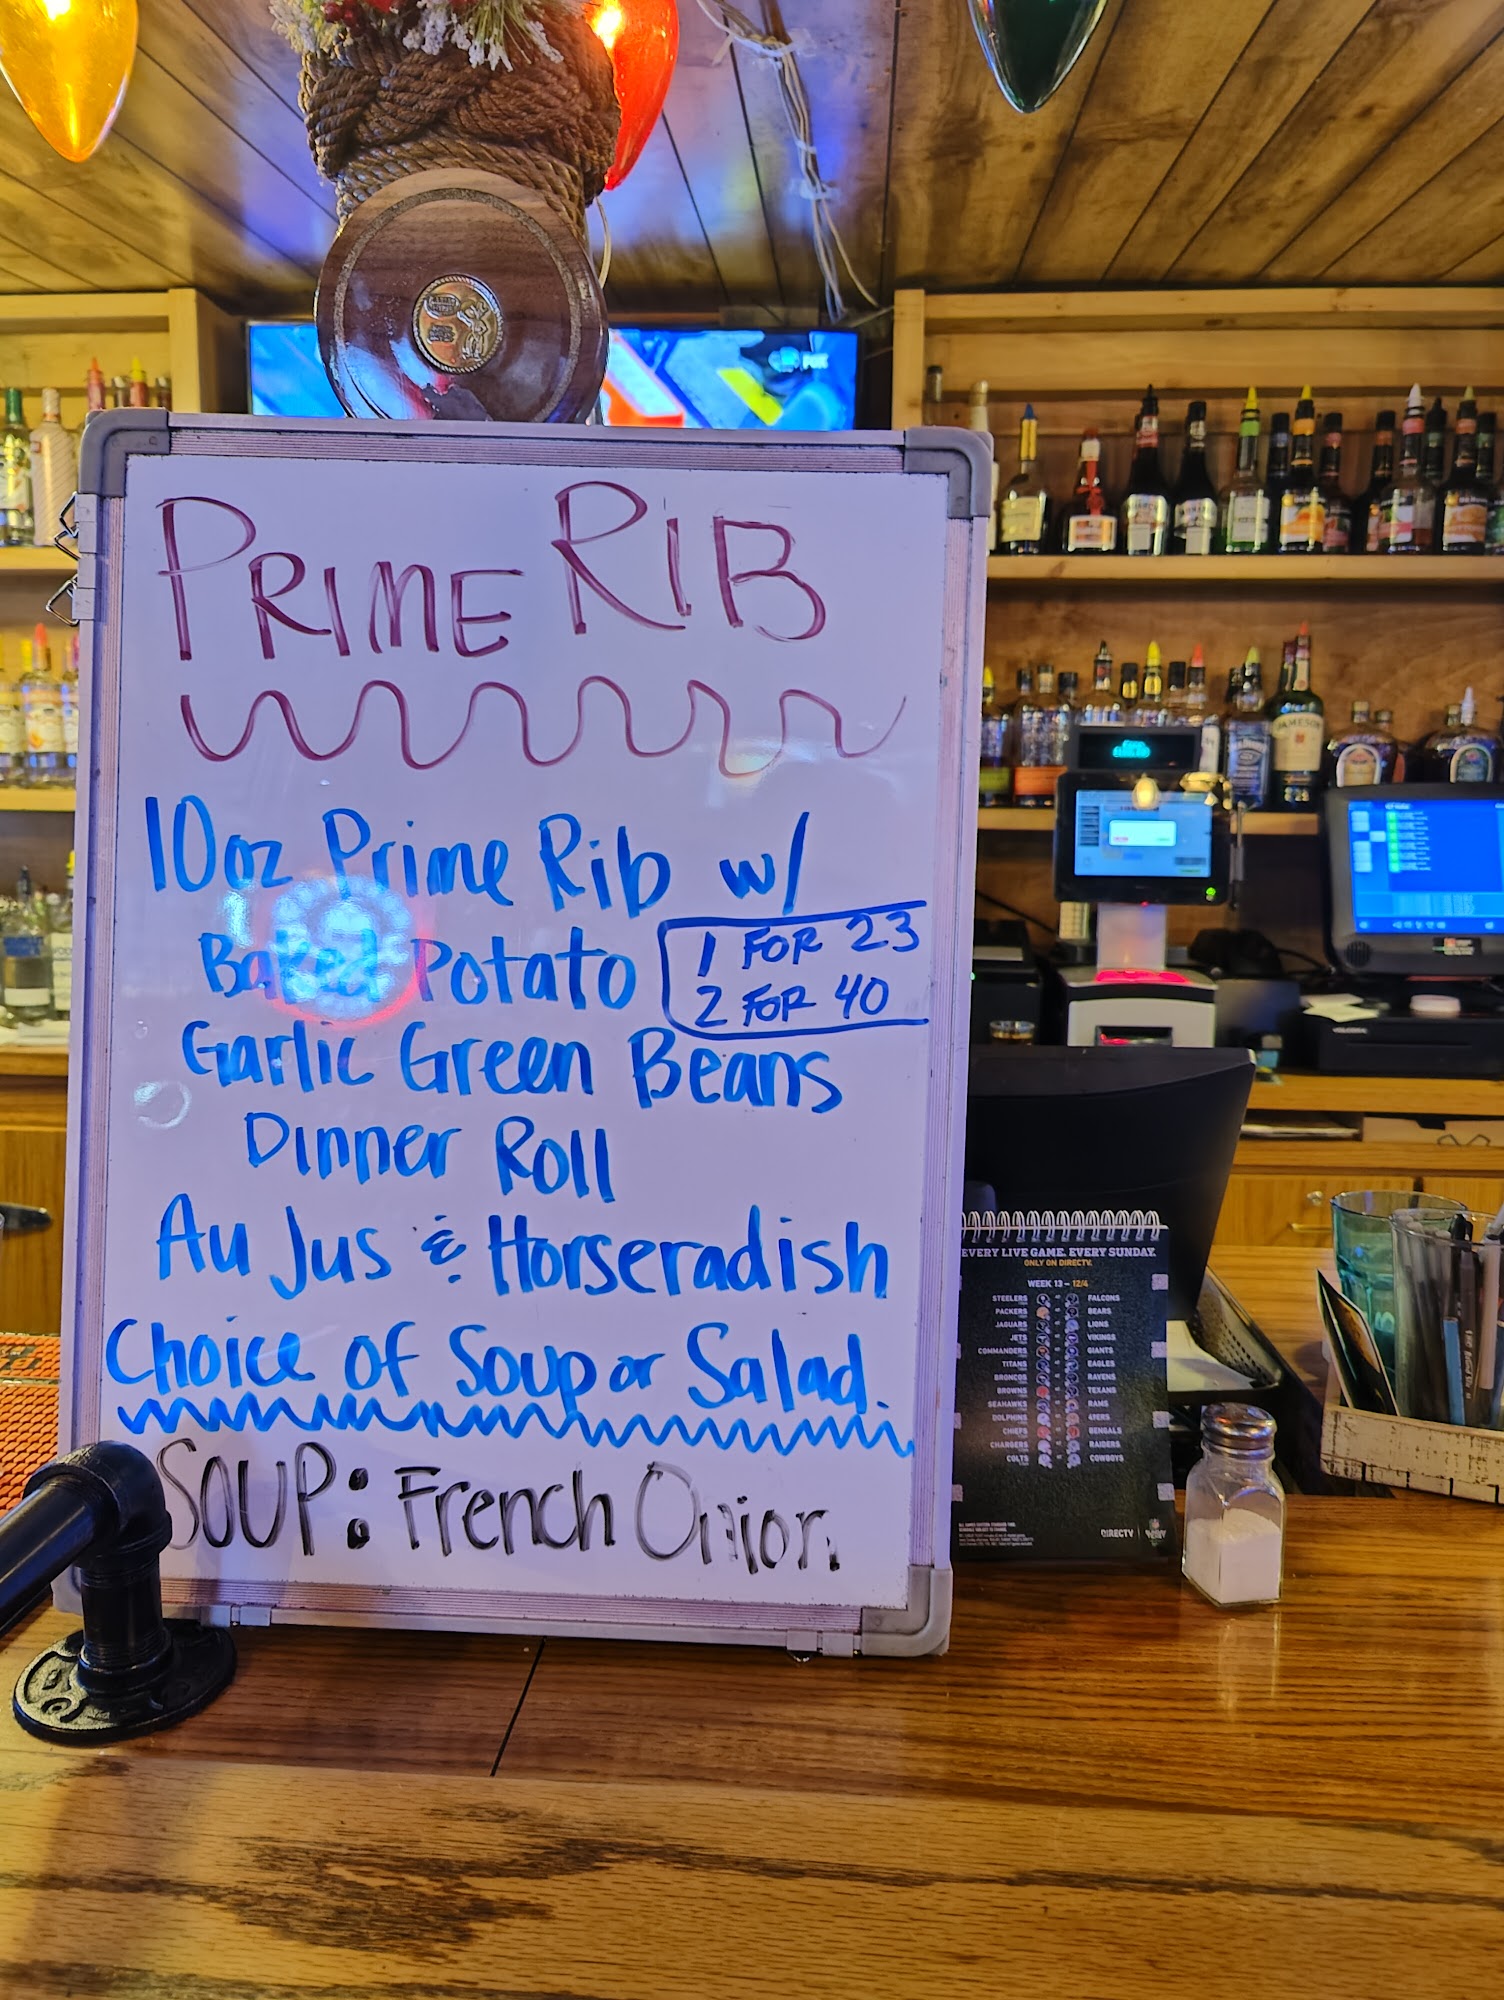 PRIME RIB
10oz Prime Rib w/
Baked Potato
1 FOR 23
2 FOR 40
Garlic Green Beans
Dinner Roll
Au Jus & Horseradish
Choice of Soup or Salad.
SOUP: French Onion
FOX
JAMESON
EVERY LIVE GAME. EVERY SUNDAY.
ONLY ON DIRECTV.
WEEK 13 – 12/4
STEELERS FALCONS
PACKERS BEARS
JAGUARS LIONS
JETS VIKINGS
COMMANDERS GIANTS
TITANS EAGLES
BRONCOS RAVENS
BROWNS TEXANS
SEAHAWKS RAMS
DOLPHINS 49ERS
CHIEFS BENGALS
CHARGERS RAIDERS
COLTS COWBOYS
DIRECTV